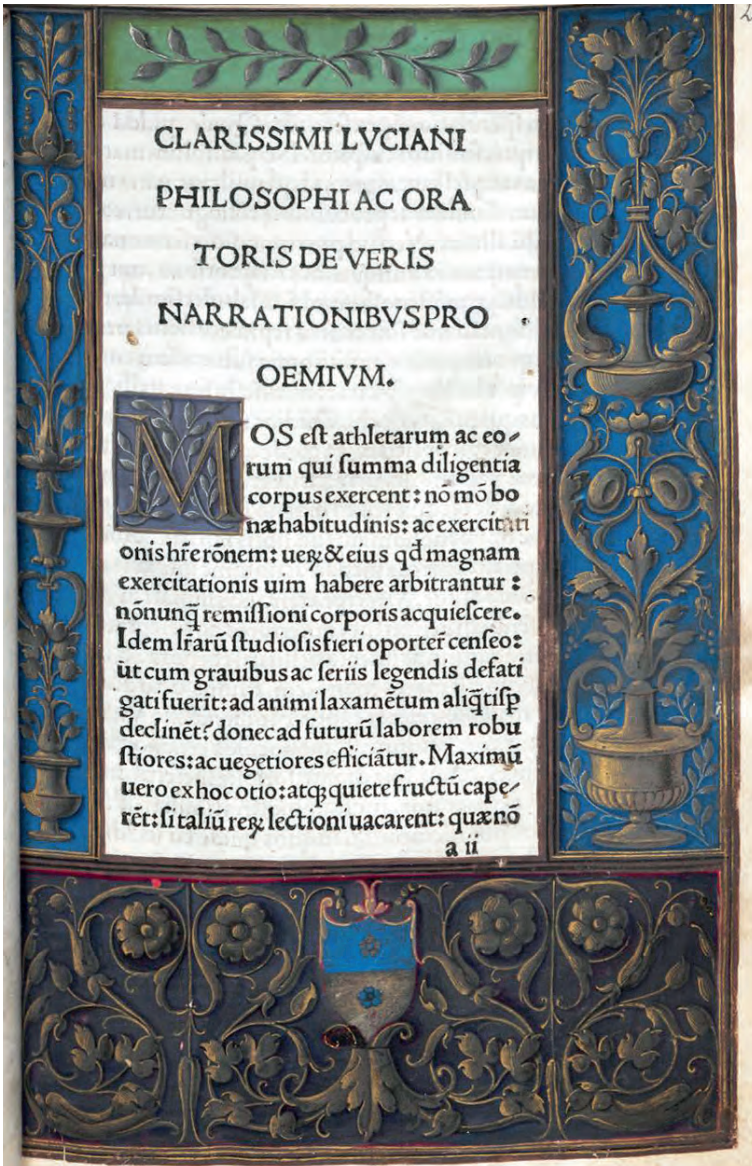 CLARISSIMI LVCIANI
PHILOSOPHI AC ORA
TORIS DE VERIS
NARRATIONIBVS PRO
OEMIVM.
MOS eſt athletarum ac eo⸗
rum qui ſumma diligentia
corpus exercent: nō mō bo
næ habitudinis: ac exercitati
onis hr̄e rōnem: ueꝝ & eius qđ magnam
exercitationis uim habere arbitrantur:
nōnunq̄ remiſſioni corporis acquieſcere.
Idem lr̄arū ſtudioſis fieri oporter̄ cenſeo:
ut cum grauibus ac ſeriis legendis defati
gati fuerīt: ad animi laxamētum aliq̄tiſꝑ
declinēt: donec ad futurū laborem robu
ſtiores: ac uegetiores efficiātur. Maximū
uero ex hoc otio: atqꝫ quiete fructū cape⸗
rēt: ſi taliū reꝝ lectioni uacarent: quæ nō
a ii